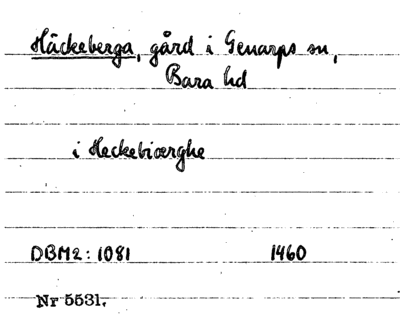 Häckeberga, gård i Genarps sn,
Bara hd
i Heckebiærghe
DBM2: 1081 1460
Nr 5531.